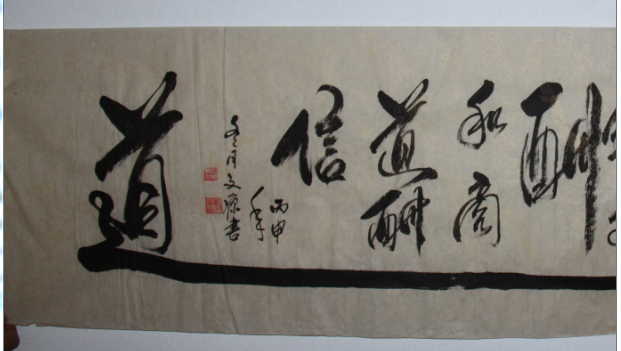 酬
和商
道酬
信
丙申
年
冬月文源书
道